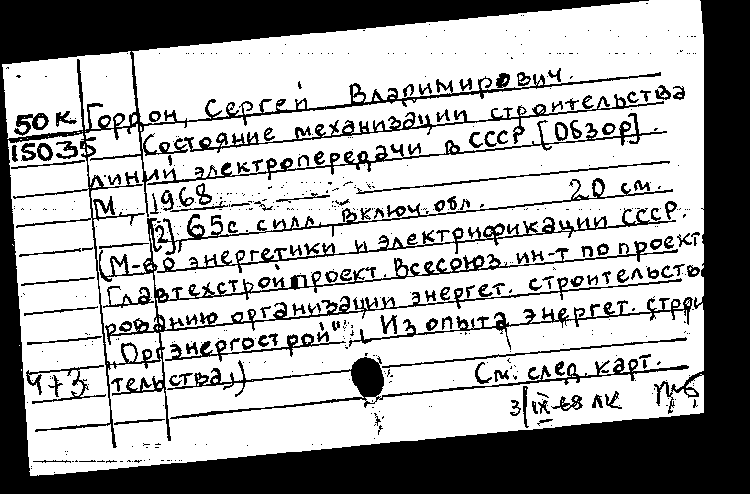 50к Гордон, Сергей Владимирович.
15035 Состояние механизации строительства
линий электропередачи в СССР. [Обзор].
М., 1968
[2], 65с. с илл., включ. обл. 20 см.
(М-во энергетики и электрификации СССР.
Главтехстройпроект. Всесоюз. ин-т по проекти
рованию организации энергет. строительства
"Оргэнергострой". Из опыта энергет. строи
4+3 тельства.)
См. след. карт.
3/IX-68 ЛК